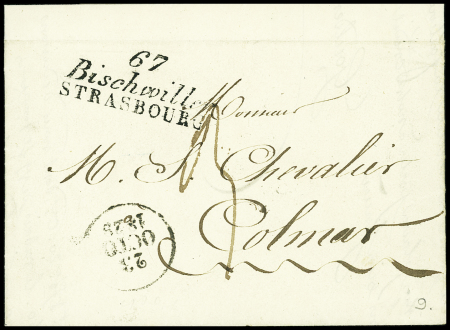 67
Bischwiller
STRASBOURG
Monsieur
M. S. Chevalier
Colmar
23
OCTO
1828
3
9.